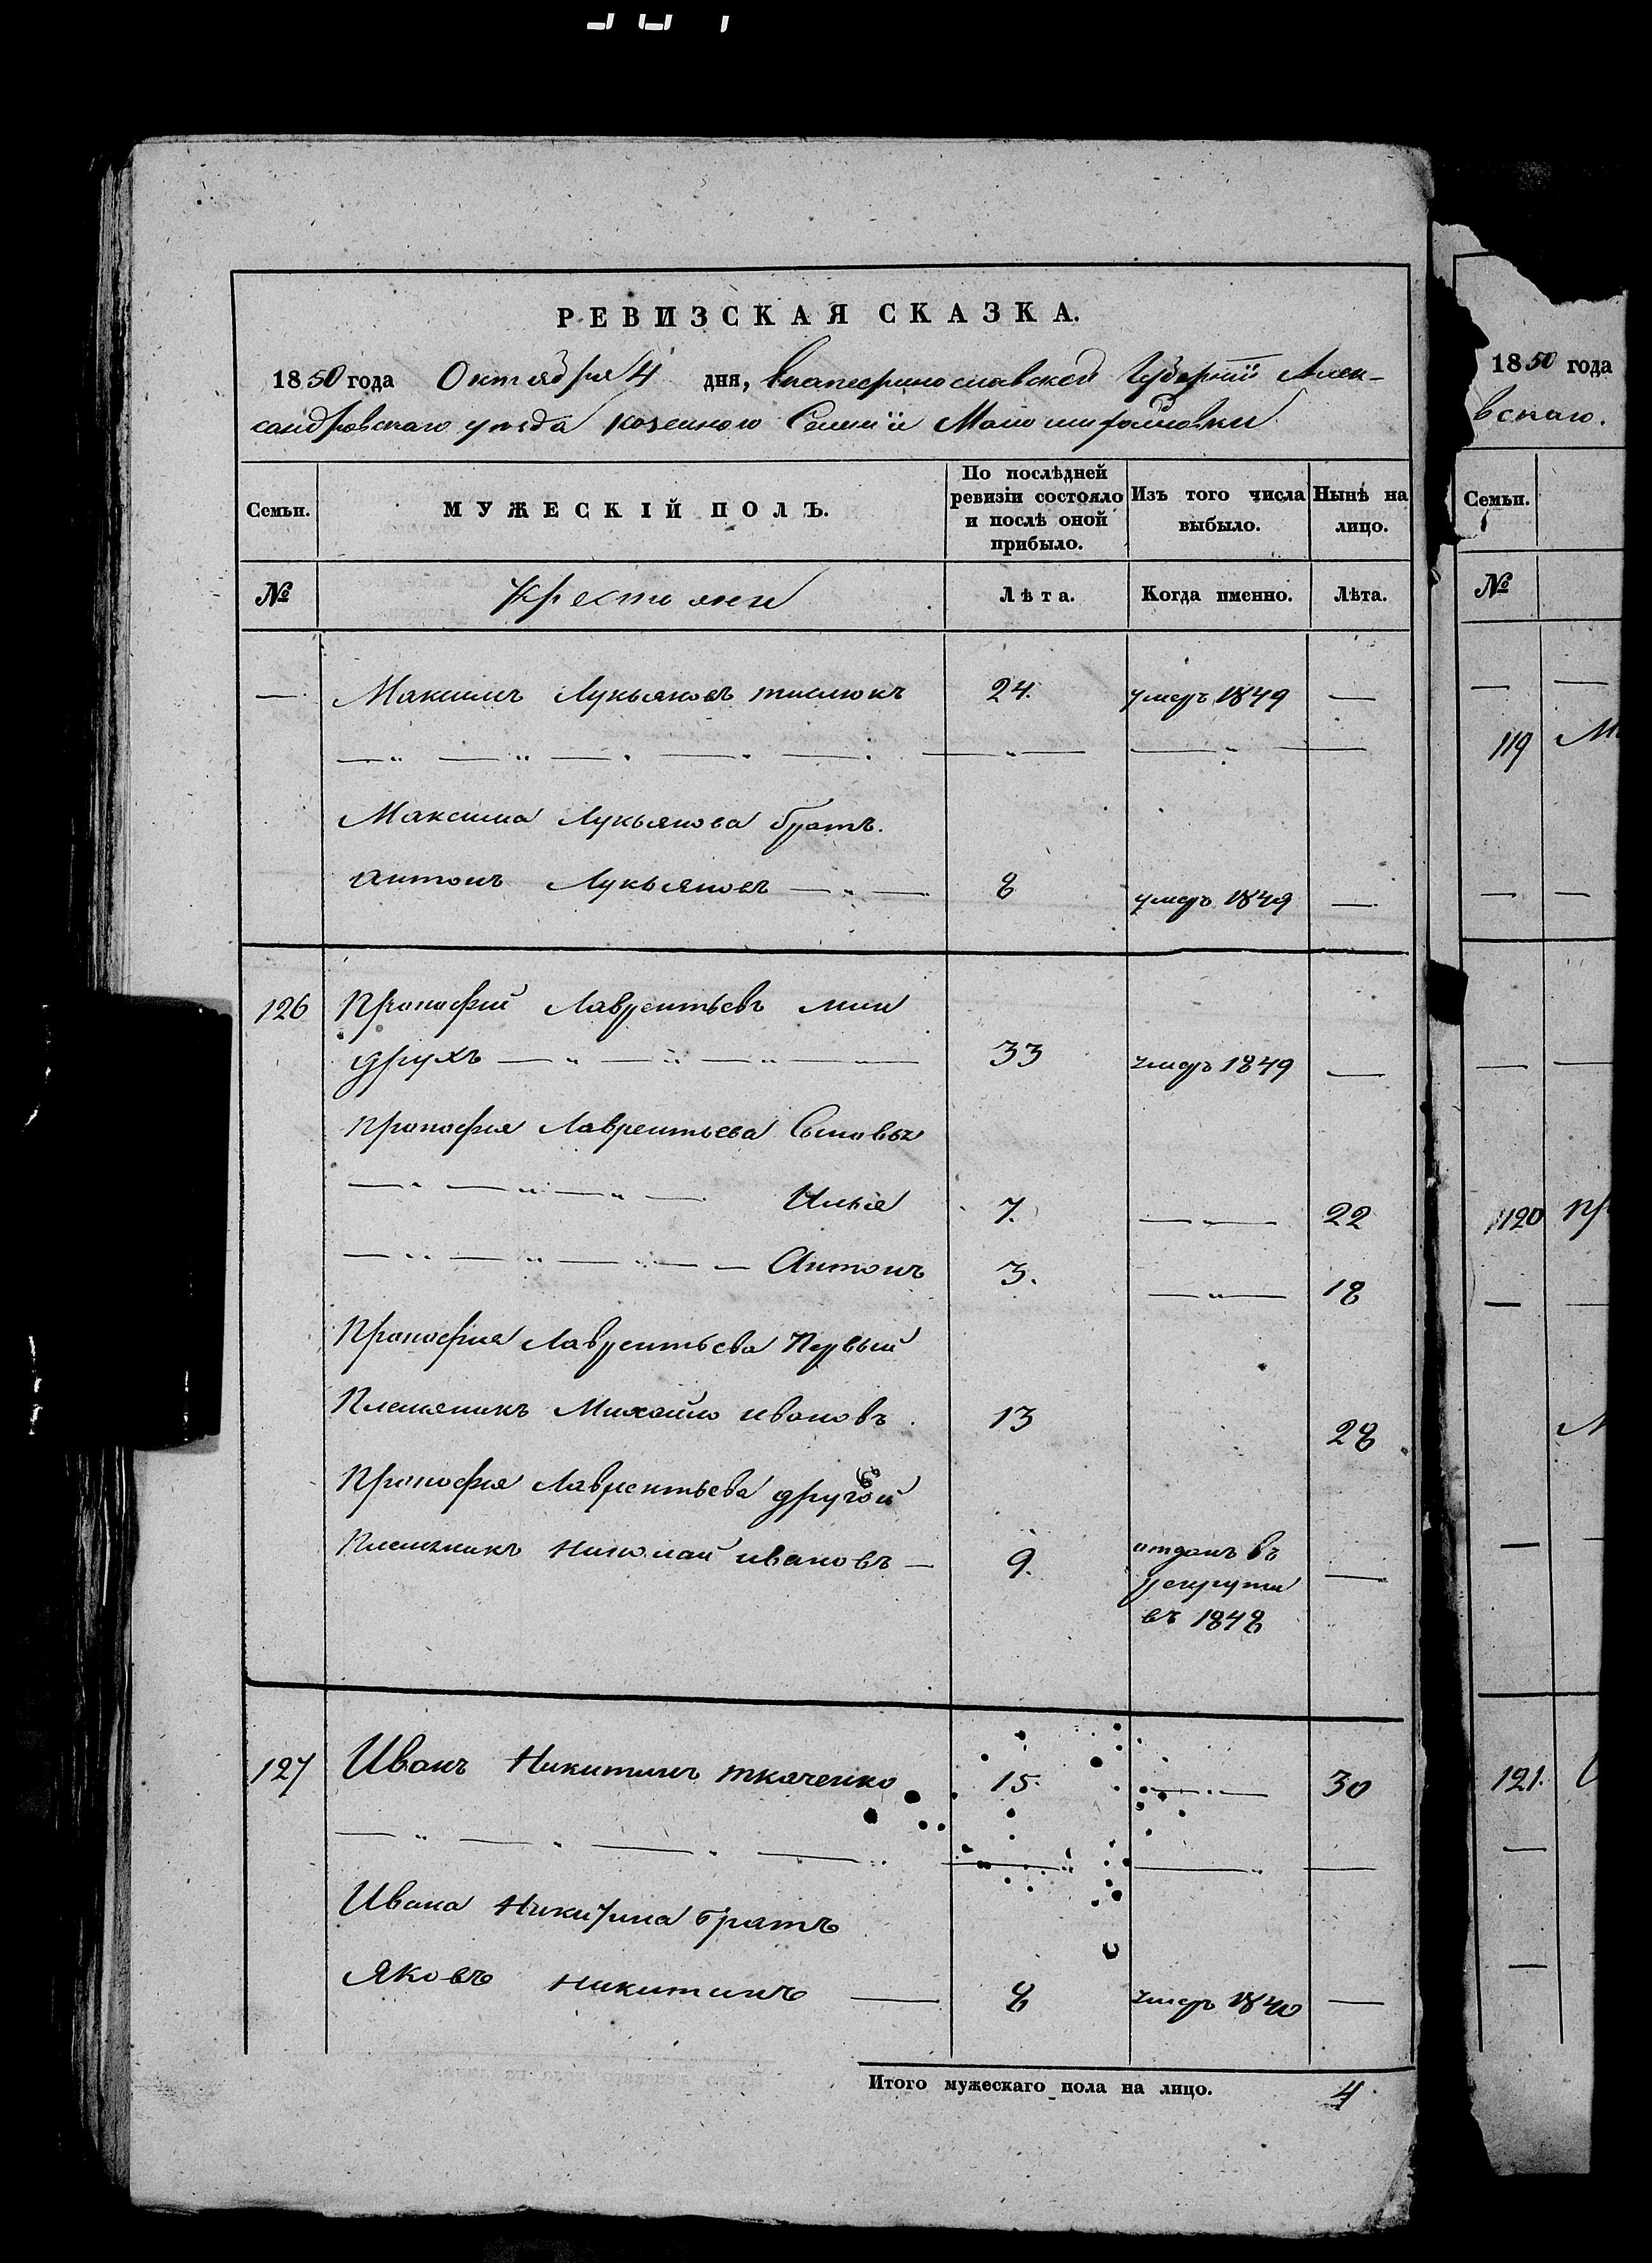 РЕВИЗСКАЯ СКАЗКА.
1850 года Октября 4 дня, Екатеринославской Губернїи Алек-
сандровскаго уѣзда казенного Селенїя
Семьи. МУЖЕСКІЙ ПОЛЪ. По послѣдней ревизіи состояло и послѣ оной прибыло. Изъ того числа выбыло. Нынѣ на лицо.
№ Крестьяни Лѣта. Когда именно. Лѣта.
— Максимъ Лукьяновъ 24. умеръ 1849 —
Максима Лукьянова братъ.
Антонъ Лукьяновъ — „ — 8 умеръ 1849 —
126 Прокофїй Лаврентьевъ мин
друхъ — „ — „ — „ — 33 умеръ 1849 —
Прокофия Лаврентьева Сыновья
— „ — „ — „ — Илья 7. — „ — 22
— „ — „ — „ — Антонъ 3. — „ — 18
Прокофия Лаврентьева Первый
Племяникъ Михайло ивановъ 13 28
Прокофия Лаврентьева другой
Племяникъ Николай ивановъ — 9. отданъ въ
рекруты —
въ 1848
127 Иванъ Никитинъ ткаченко 15. — „ — 30
Ивана Никитина братъ
Яковъ никитинъ — 8 умеръ 1840 —
Итого мужескаго пола на лицо. 4
1850 года
вскаго.
Семьи.
№
119
120 Пр
121.